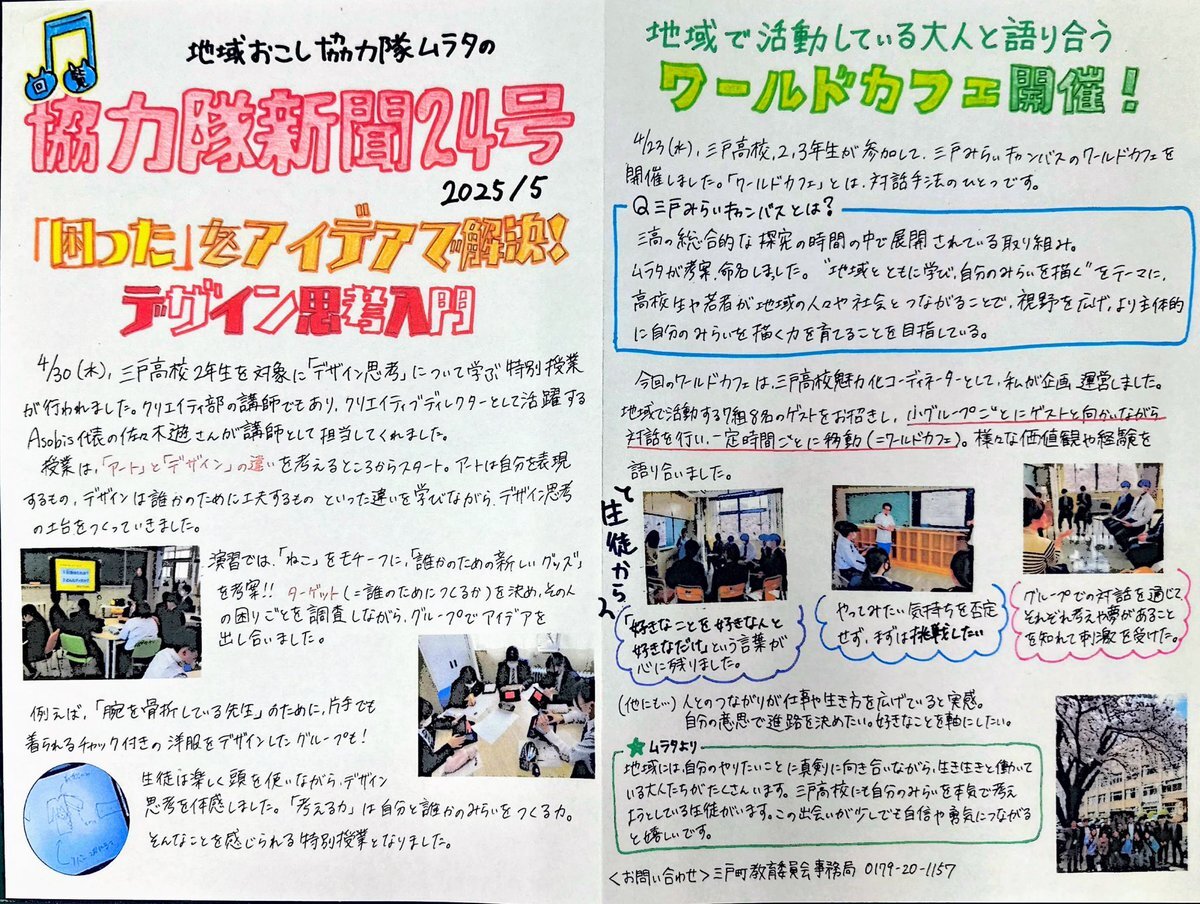 回覧
地域おこし協力隊ムラタの
協力隊新聞24号
2025/5
「困った」をアイデアで解決!
デザイン思考入門
4/30(水)、三戸高校2年生を対象に「デザイン思考」について学ぶ特別授業
が行われました。クリエイティ部の講師でもあり、クリエイティブディレクターとして活躍する
Asobis代表の佐々木遊さんが講師として担当してくれました。
授業は、「アート」と「デザイン」の違いを考えるところからスタート。アートは自分を表現
するもの、デザインは誰かのために工夫するもの といった違いを学びながら、デザイン思考
の土台をつくっていきました。
演習では、「ねこ」をモチーフに、「誰かのための新しいグッズ」
を考案!! ターゲット(=誰のためにつくるか)を決め、その人
の困りごとを調査しながら、グループでアイデアを
出し合いました。
例えば、「腕を骨折している先生」のために、片手でも
着られるチャック付きの洋服をデザインしたグループも!
生徒は楽しく頭を使いながら、デザイン
思考を体感しました。「考える力」は自分と誰かのみらいをつくる力。
そんなことを感じられる特別授業となりました。
地域で活動している大人と語り合う
ワールドカフェ開催!
4/23(水)、三戸高校、2、3年生が参加して、三戸みらいキャンバスのワールドカフェを
開催しました。「ワールドカフェ」とは、対話手法のひとつです。
Q三戸みらいキャンバスとは?
三高の総合的な探究の時間の中で展開されている取り組み。
ムラタが考案、命名しました。"地域とともに学び、自分のみらいを描く"をテーマに、
高校生や若者が地域の人々や社会とつながることで、視野を広げ、より主体的
に自分のみらいを描く力を育てることを目指している。
今回のワールドカフェは、三戸高校魅力化コーディネーターとして、私が企画、運営しました。
地域で活動する7組8名のゲストをお招きし、小グループごとにゲストと向かいながら
対話を行い、一定時間ごとに移動(=ワールドカフェ)。様々な価値観や経験を
語り合いました。
〜生徒から〜
「好きなことを好きな人と
好きなだけ」という言葉が
心に残りました。
やってみたい気持ちを否定
せず、まずは挑戦したい
グループでの対話を通じて
それぞれ考えや夢があること
を知れて刺激を受けた。
(他にも…) 人とのつながりが仕事や生き方を広げていると実感。
自分の意思で進路を決めたい。好きなことを軸にしたい。
ムラタより
地域には、自分のやりたいことに真剣に向き合いながら、生き生きと働いて
いる大人たちがたくさんいます。三戸高校にも自分のみらいを本気で考え
ようとしている生徒がいます。この出会いが少しでも自信や勇気につながる
と嬉しいです。
<お問い合わせ>三戸町教育委員会事務局 0179-20-1157